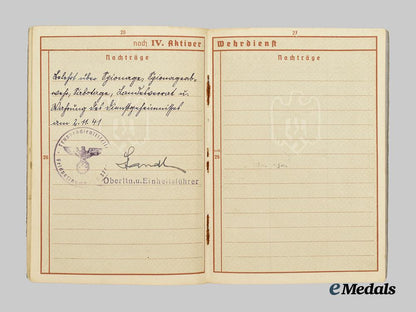 20
noch IV. Aktiver
Nachträge
Belehrt über Spionage, Spionageab-
wehr, Sabotage, Landesverrat u.
Wahrung des Dienstgeheimnisses
am 2.11.41
26
Oberltn.u.Einheitsführer
21
Wehrdienst
Nachträge
26
eMedals